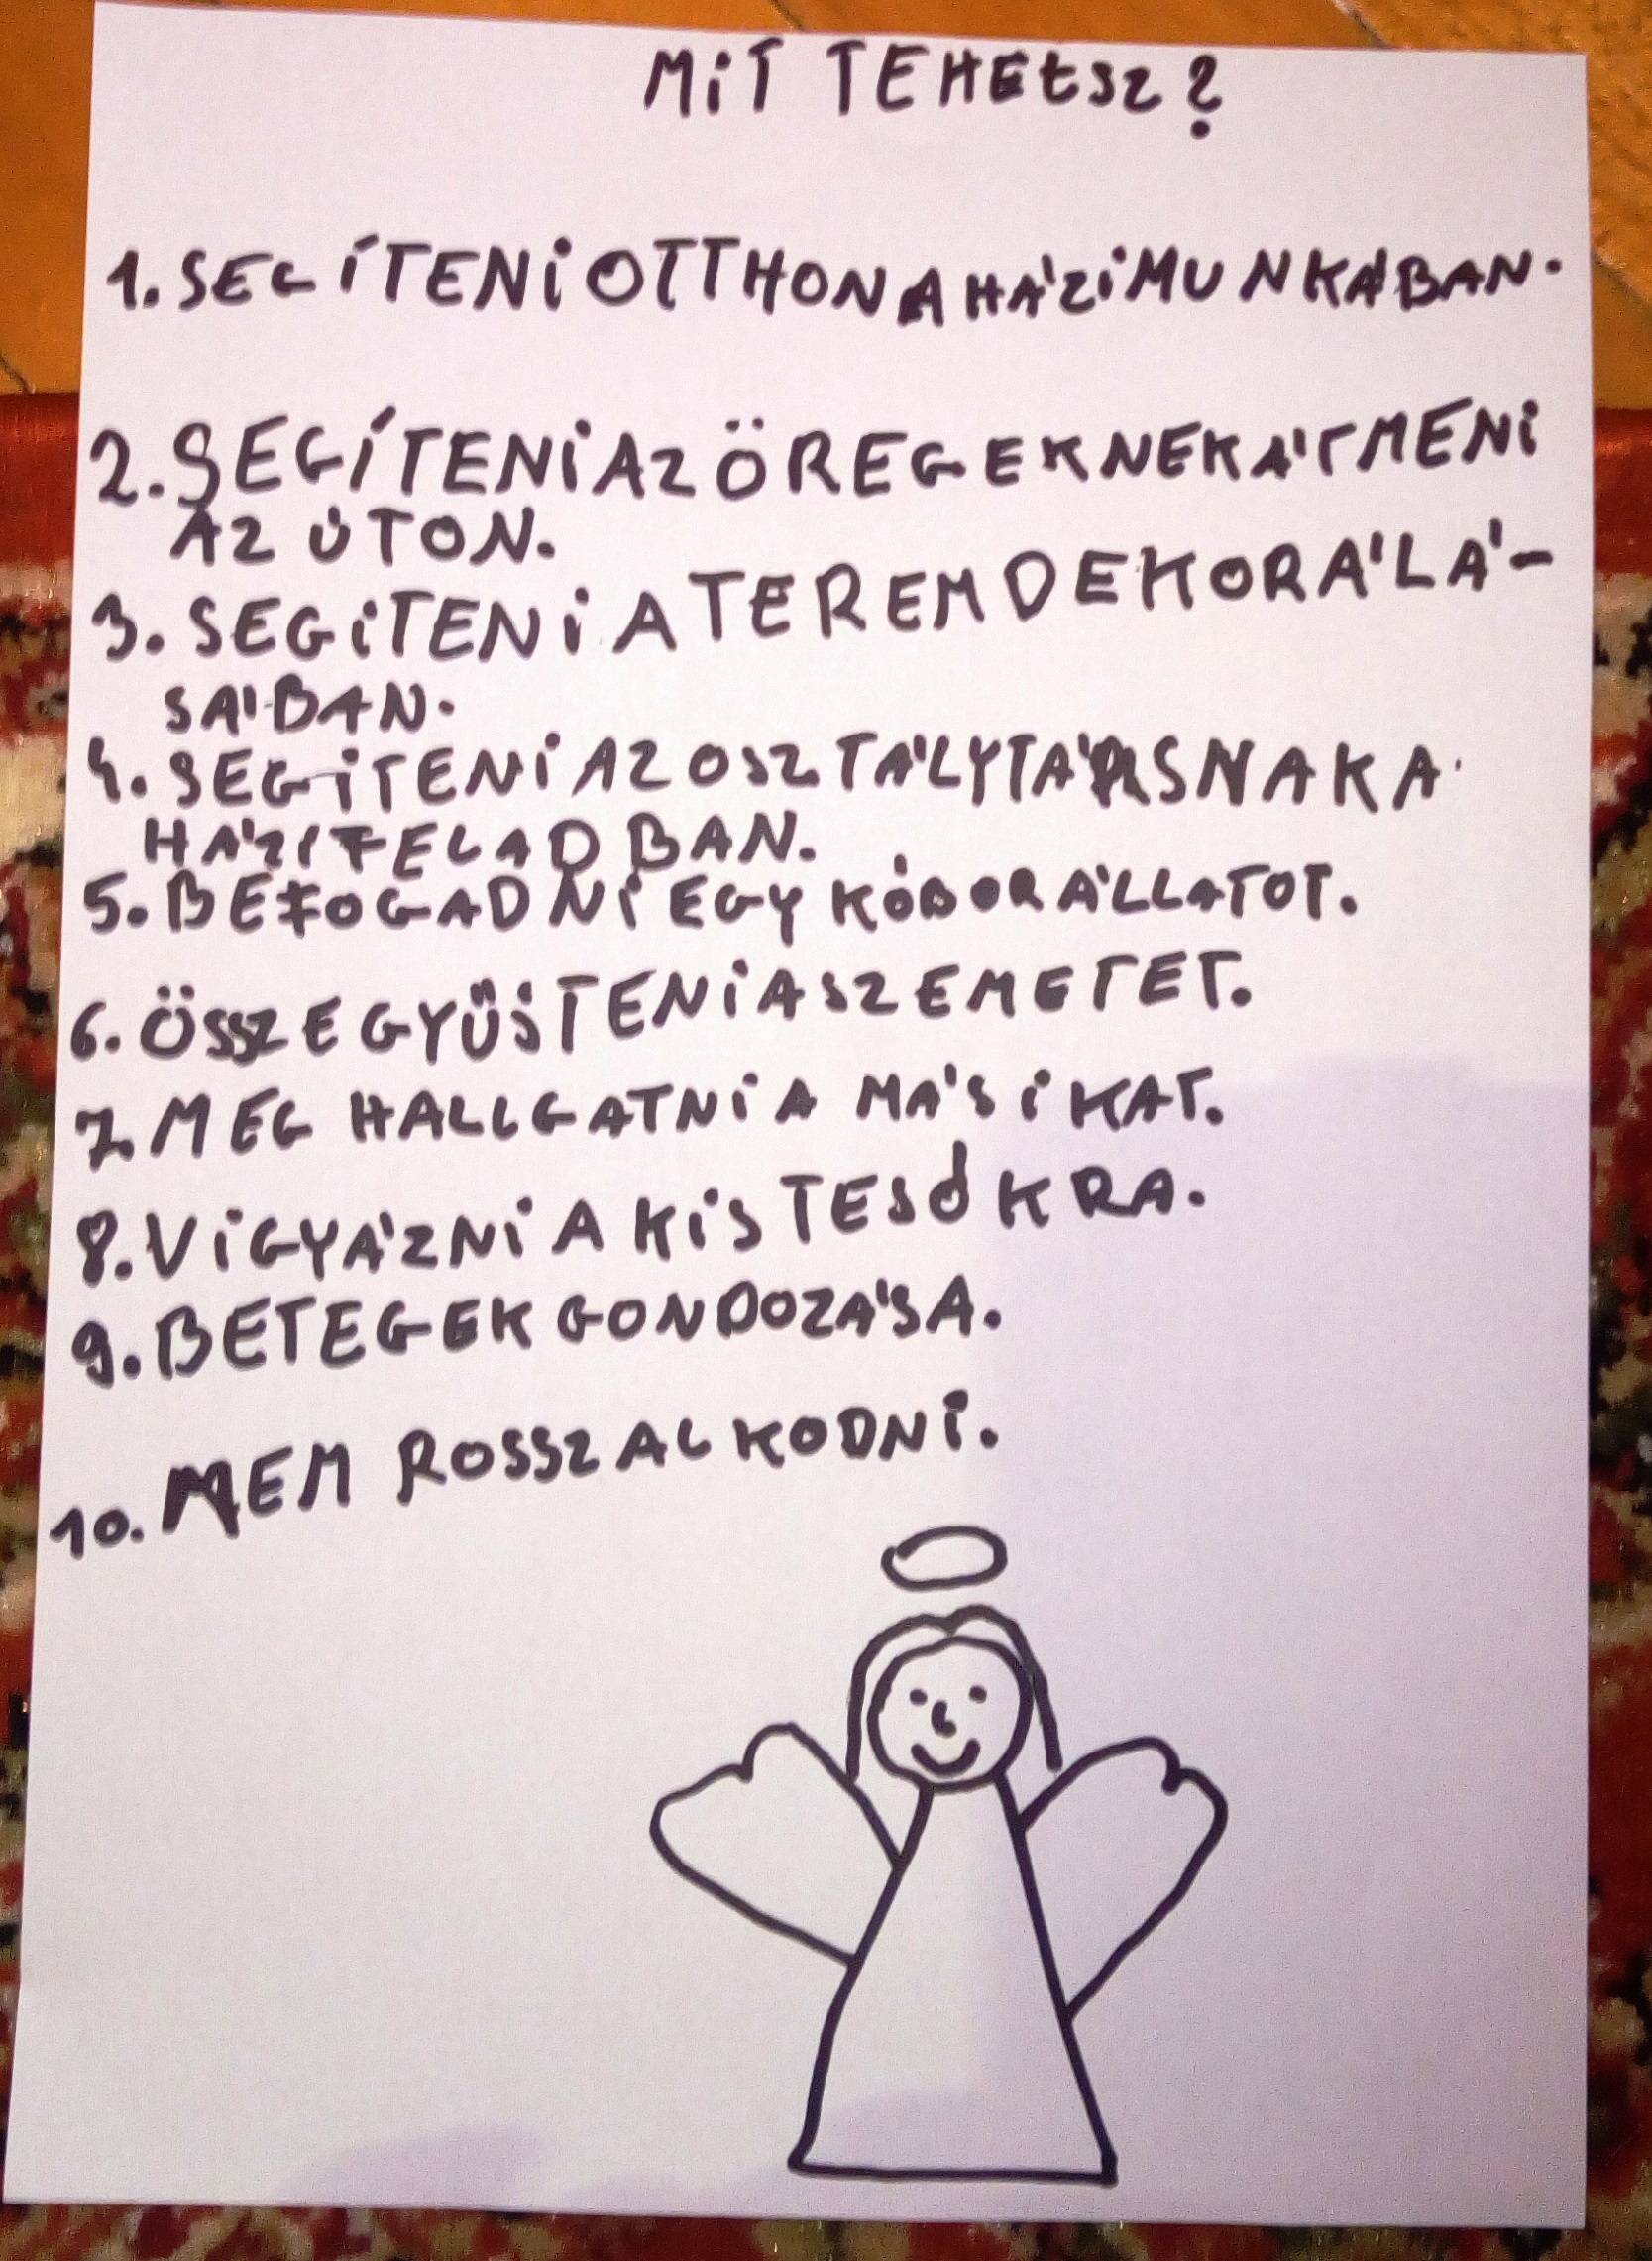 MIT TEHETSZ?
1. SEGÍTENI OTTHON A HÁZIMUNKÁBAN.
2. SEGÍTENI AZ ÖREGEKNEK ÁTMENI
AZ ÚTON.
3. SEGITENI A TEREM DEKORÁLÁ-
SÁBAN.
4. SEGITENI AZ OSZTÁLYTÁRSNAK A
HÁZIFELADBAN.
5. BEFOGADNI EGY KÓBOR ÁLLATOT.
6. ÖSSZEGYŰSTENI A SZEMETET.
7. MEG HALLGATNI A MÁSIKAT.
8. VIGYÁZNI A KISTESÓKRA.
9. BETEGEK GONDOZÁSA.
10. NEM ROSSZALKODNI.